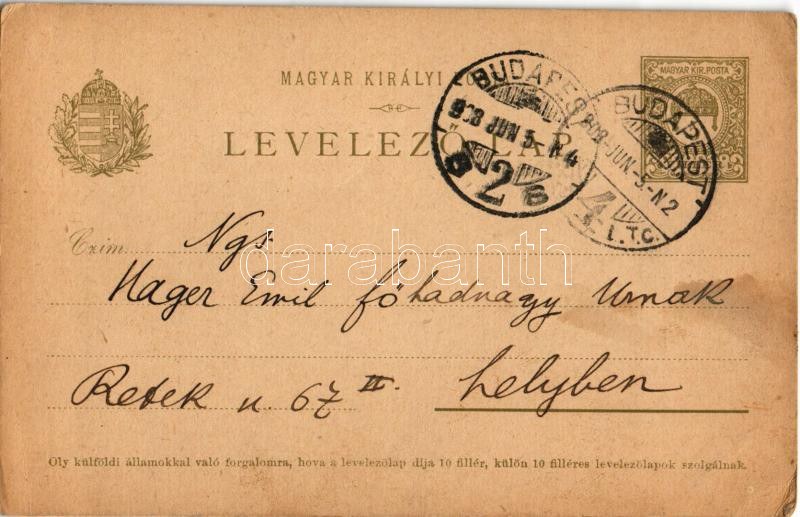 MAGYAR KIRÁLYI
MAGYAR KIR. POSTA
LEVELEZŐ LAP
BUDAPEST
908 JUN 5 N 4
2
B B
BUDAPEST
908-JUN-5-N2
4
L.T.C.
Czim:
Ngs
Hager Emil főhadnagy Urnak
Retek u. 67 II.
helyben
darabanth
Oly külföldi államokkal való forgalomra, hova a levelezőlap díja 10 fillér, külön 10 filléres levelezőlapok szolgálnak.